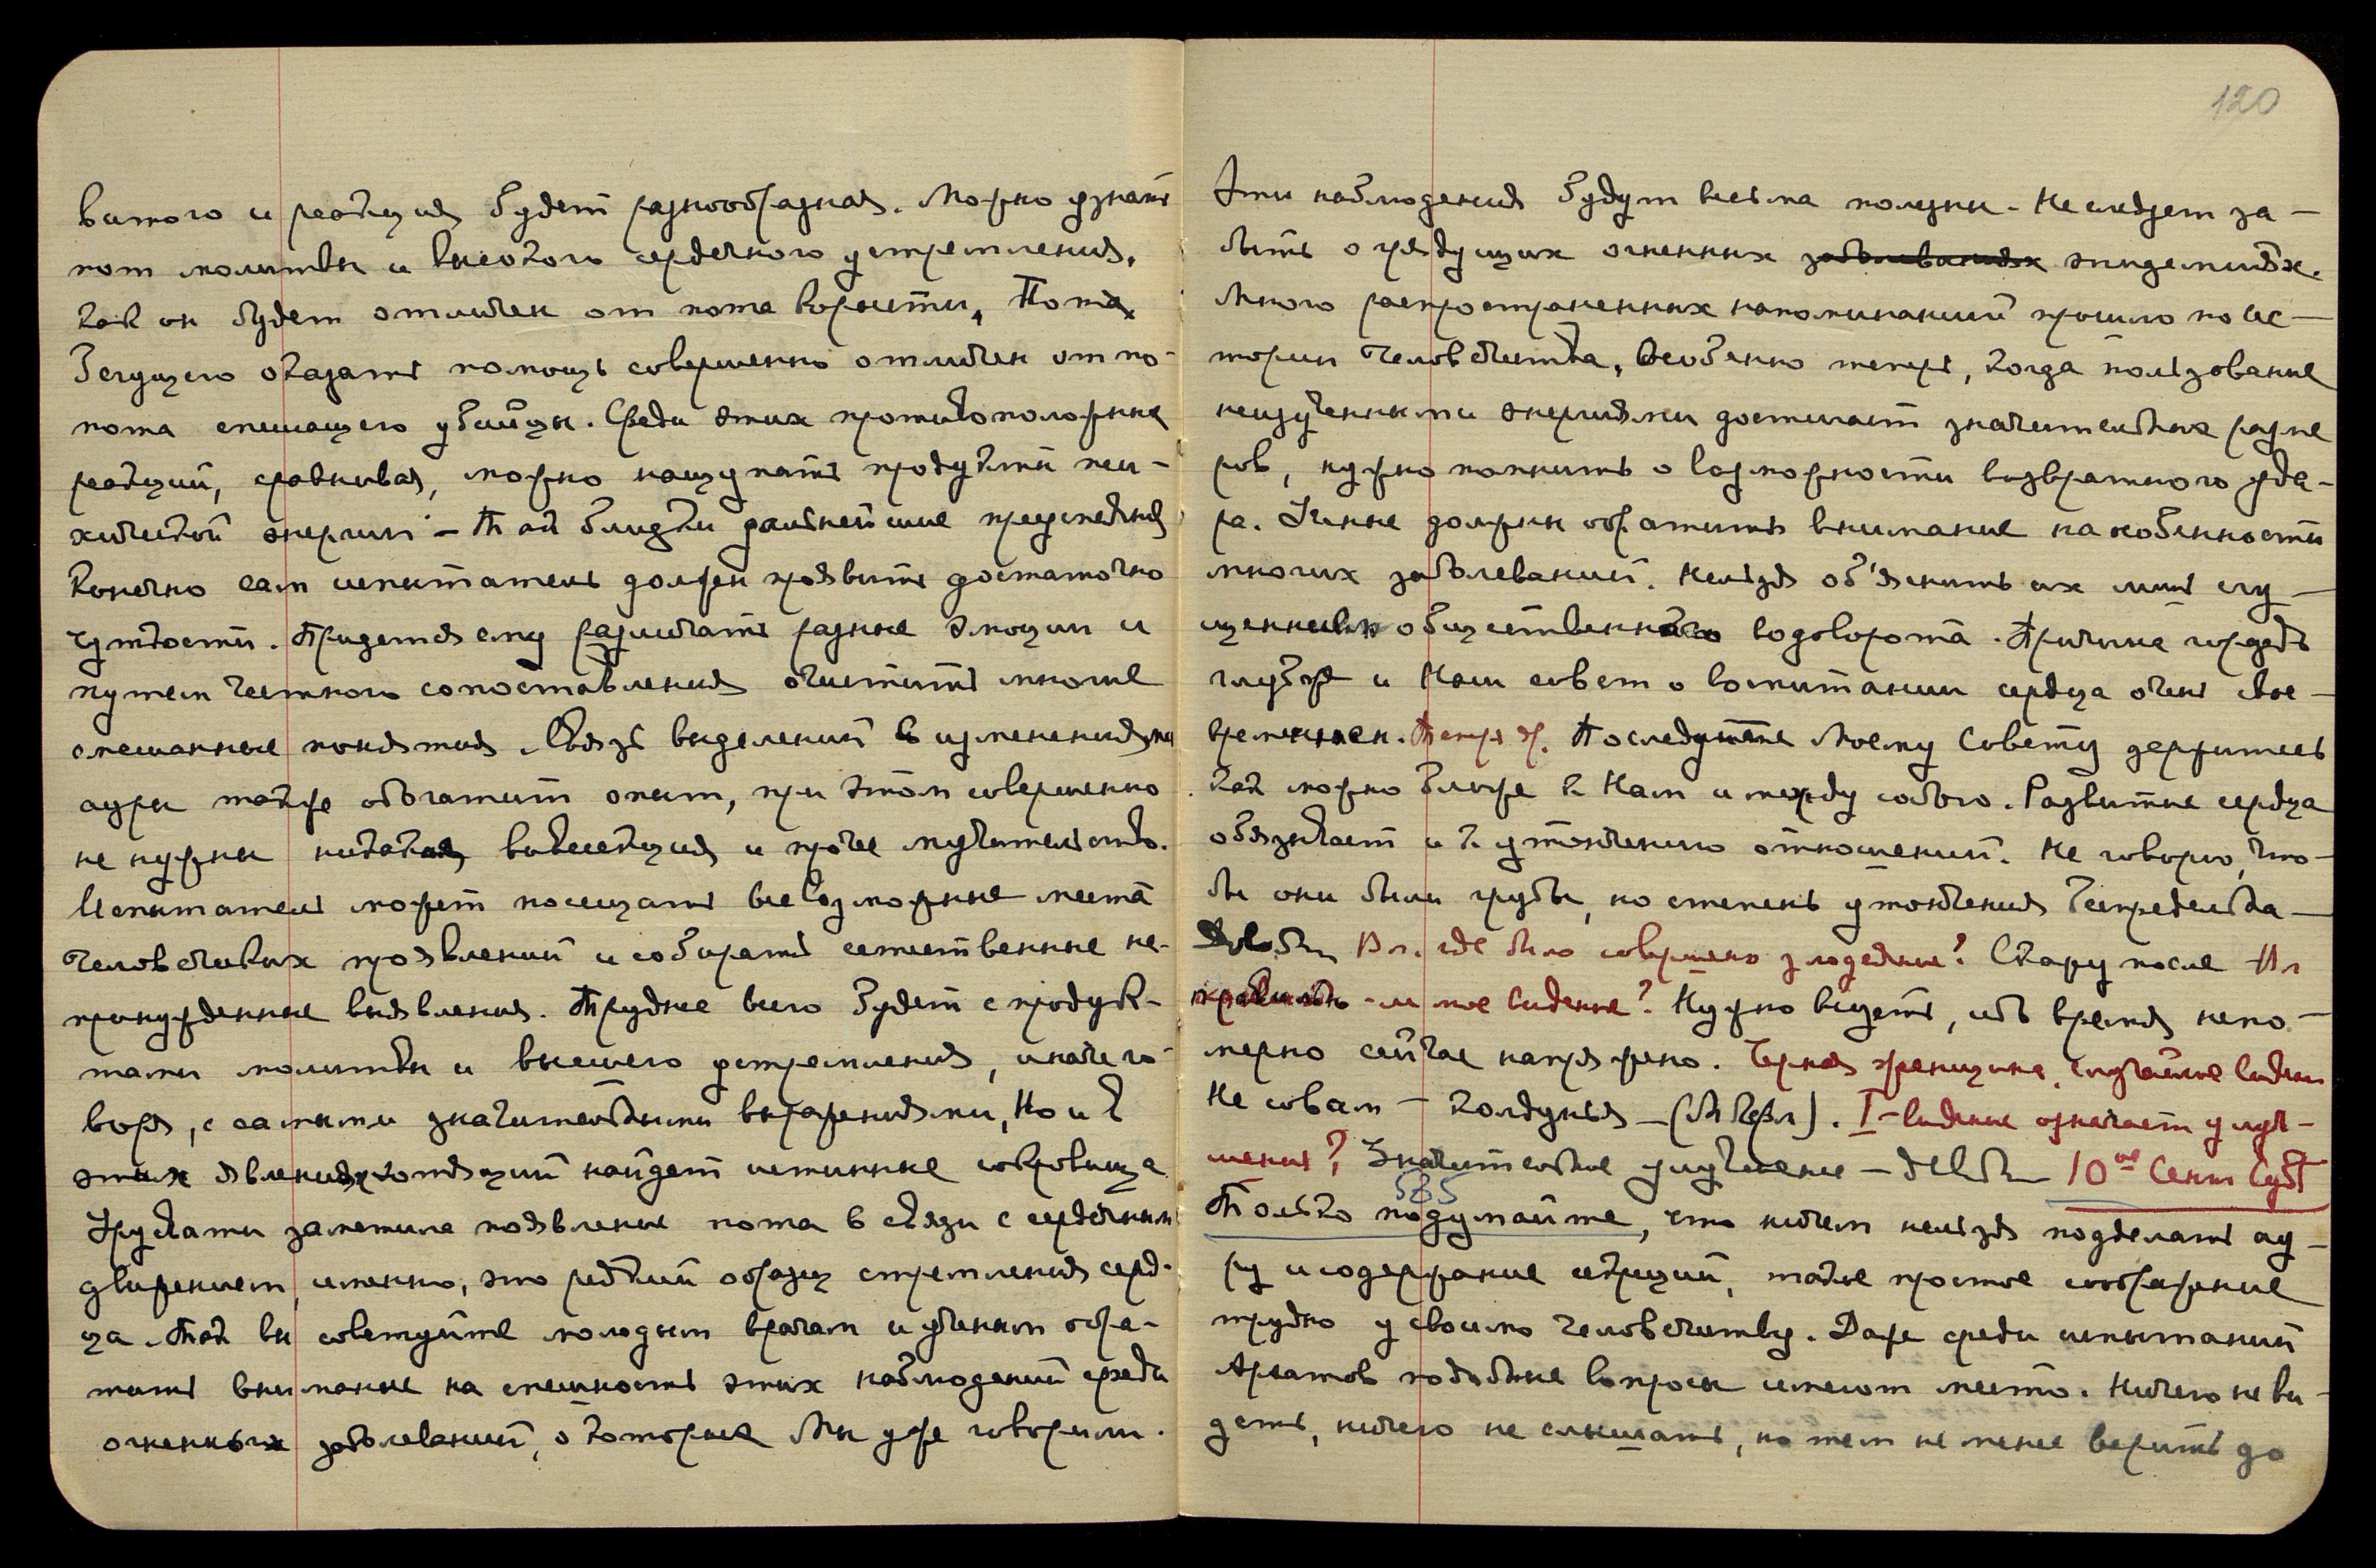 120
витого и реакция будет разнообразная. Можно узнать
пот молитвы и высокого сердечного устремления,
как он будет отличен от пота корысти. Пот
бегущего оказать помощь совершенно отличен от по-
пота спешащего убийцы. Среди этих противоположные
реакций, сравнивая, можно нащупать продукты пси-
хической энергии – Так близки полезнейшие
Конечно сам испытатель должен проявить достаточно
чуткости. Придется ему различать разные эмоции и
путем честного сопоставления очистить многие
смешанные понятия. Связь выделений с изменениями
ауры также обогатит опыт, при этом совершенно
не нужны никакая вивисекция и прочее мучительство.
Испытатель может посещать всевозможные места
человеческих проявлений и собирать естественные не-
принужденные выявления. Труднее всего будет с продук-
тами молитвы и высшего устремления, иначе го-
воря, с самыми значительными выражениями, Но и в
этих явлениях хотящий найдет истинные сокровища
Урусвати заметила появление пота в связи с сердечным
движением, именно, это редкий образец стремления серд-
ца. Так вы советуйте молодым врачам и ученым обра-
тить внимание на спешность этих наблюдений среди
огненных заболеваний, о которых Мы уже говорили.
Эти наблюдения будут весьма полезны. Не следует за-
быть о грядущих огненных заболеваниях эпидемиях.
Много распространенных напоминаний прошло по ис-
тории человечества, Особенно теперь, когда пользование
неизученными энергиями достигает значительных разме
ров, нужно помнить о возможности возвратного уда-
ра. Ученые должны обратить внимание на особенности
многих заболеваний. Нельзя об'яснить их лишь сгу-
щением общественного водоворота. Причина гораздо
глубже и Наш совет о воспитании сердца очень свое-
временен. Последуйте Моему Совету держитесь
как можно ближе к Нам и между собою. Развитие сердца
обязывает и к утончению отношений. Не говорю, что-
бы они были грубы, но степень утончения беспредельна –
Вл. где было совершено злодеяние? Скажу после Вл
правильно-ли мое видение? Нужно видеть, ибо время непо-
мерно сейчас напряжено. Черная женщина,
Не совам – колдунья – . I – видение означает улуч-
шение? Значительное улучшение – 10ое Сент Субб
585
Только подумайте, что ничем нельзя подделать ау-
ру и содержание секреций, такое простое соображение
трудно усвоимо человечеству. Даже среди испытаний
Архатов подобные вопросы имеют место. Ничего не ви-
деть, ничего не слышать, но тем не менее верить до